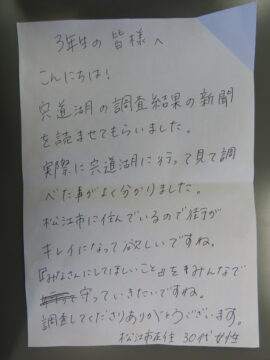 3年生の皆様へ
こんにちは!
宍道湖の調査結果の新聞
を読ませてもらいました。
実際に宍道湖に行って見て調
べた事がよく分かりました。
松江市に住んでいるので街が
キレイになって欲しいですね。
『みなさんにしてほしいこと』をみんなで
守っていきたいですね。
調査してくださりありがとうございます。
松江市在住 30代女性